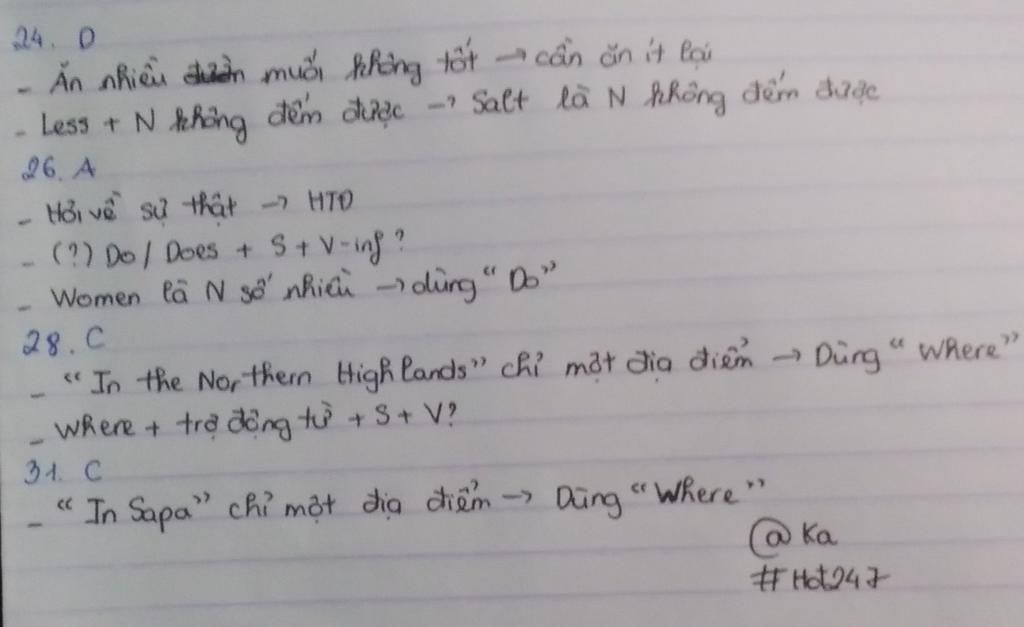 24. D
- Ăn nhiều muối không tốt → cần ăn ít lại
- Less + N không đếm được → Salt là N không đếm được
26. A
- Hỏi về sự thật → HTĐ
- (?) Do / Does + S + V-inf ?
- Women là N số nhiều → dùng “Do”
28. C
- “In the Northern Highlands” chỉ một địa điểm → Dùng “Where”
- Where + trợ động từ + S + V?
31. C
- “In Sapa” chỉ một địa điểm → Dùng “Where”
@Ka
#Hot247